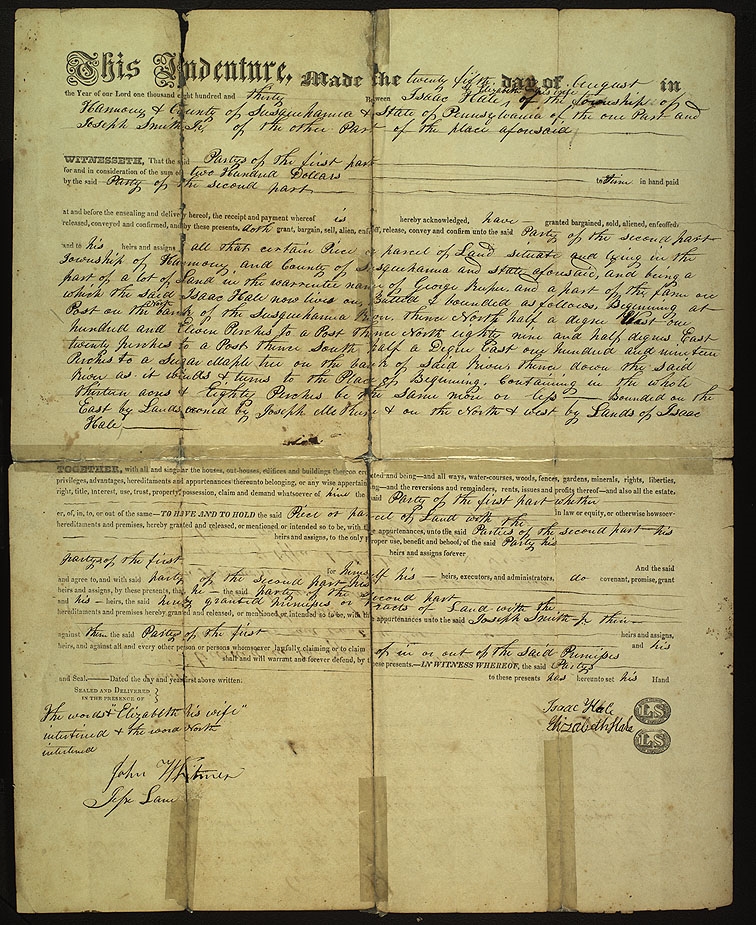 This Indenture, Made the twenty fifth day of August in
& Elizabeth his wife
the Year of our Lord one thousand eight hundred and thirty Between Isaac Hale, of the Township of
Harmony & County of Susquehanna & State of Pennsylvania of the one Part and
Joseph Smith Jr. of the other Part of the place aforesaid
WITNESSETH, That the said Partys of the first part
for and in consideration of the sum of two Hundred Dollars
by the said Party of the second part to him in hand paid
at and before the ensealing and delivery hereof, the receipt and payment whereof is hereby acknowledged, have granted bargained, sold, aliened, enfeoffed,
released, conveyed and confirmed, and by these presents, doth grant, bargain, sell, alien, enfeoff, release, convey and confirm unto the said Party of the second part
and to his heirs and assigns all that certain Piece or parcel of Land situate and lying in the
Township of Harmony and County of Susquehanna and State aforesaid, and being a
part of a lot of Land in the warrentee name of George and a part of the farm on
which the said Isaac Hale now lives on, Butted & bounded as follows, Begining at
Post on the bank of the Susquehanna River, thence North half a degree West one
hundred and Eleven Perches to a Post thence North eighty nine and half degrees East
twenty perches to a Post thence South half a Degree East one hundred and nineteen
Perches to a Sugar Maple tree on the bank of said River, thence down the said
River as it winds & turns to the Place of Begining. Containing in the whole
thirteen acres & Eighty Perches be the same more or less bounded on the
East by Lands owned by Joseph McKune & on the North & West by Lands of Isaac
Hale
TOGETHER, with all and singular the houses, out-houses, edifices and buildings thereon erected and being—and all ways, water-courses, woods, fences, gardens, minerals, rights, liberties,
privileges, advantages, hereditaments and appurtenances thereunto belonging, or any wise appertaining—and the reversions and remainders, rents, issues and profits thereof—and also all the estate,
right, title, interest, use, trust, property, possession, claim and demand whatsoever of him the said Party of the first part whether in law or equity, or otherwise howsoev-
er, of, in, to, or out of the same—TO HAVE AND TO HOLD the said Piece or parcel of Land with the
hereditaments and premises, hereby granted and released, or mentioned or intended so to be, with the appurtenances, unto the said Partys of the second part his
heirs and assigns, to the only proper use, benefit and behoof, of the said Party his
heirs and assigns forever
partys of the first for himself his heirs, executors, and administrators, do And the said covenant, promise, grant
and agree to, and with said party of the second part his
heirs and assigns, by these presents, that he the said party of the second part
and his heirs, the said hereby granted primises or tracts of Land with the
hereditaments and premises hereby granted and released, or mentioned or intended so to be, with the appurtenances unto the said Joseph Smith Jr
against them the said Partys of the first heirs and assigns,
heirs, and against all and every other person or persons whomsoever lawfully claiming or to claim of in or out of the said Primises and his
shall and will warrant and forever defend, by these presents.—IN WITNESS WHEREOF, the said Partys
to these presents has hereunto set his Hand
and Seal.—Dated the day and year first above written.
SEALED AND DELIVERED
IN THE PRESENCE OF
The words "Elizabeth his wife"
interlined & the word North
interlined
John Whitmer
Jesse Lane
Isaac Hale LS
Elizabeth Hale LS